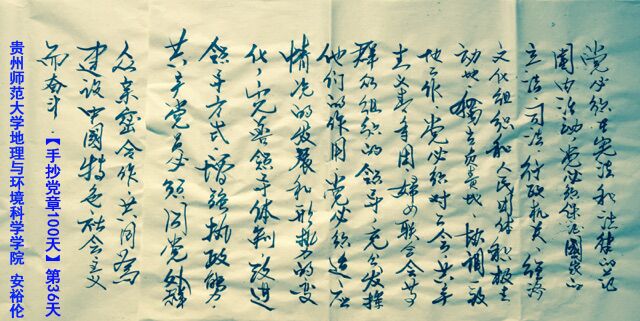 党必须在宪法和法律的范
围内活动。党必须保证国家的
立法、司法、行政机关，经济、
文化组织和人民团体积极主
动地、独立负责地、协调一致
地工作。党必须对工会、共产
主义青年团、妇女联合会等
群众组织的领导，充分发挥
他们的作用。党必须适应
情况的发展和形势的变
化，完善领导体制，改进
领导方式，增强执政能力。
共产党员必须同党外群
众亲密合作，共同为
建设中国特色社会主义
而奋斗．
【手抄党章100天】第36天
贵州师范大学地理与环境科学学院 安裕伦